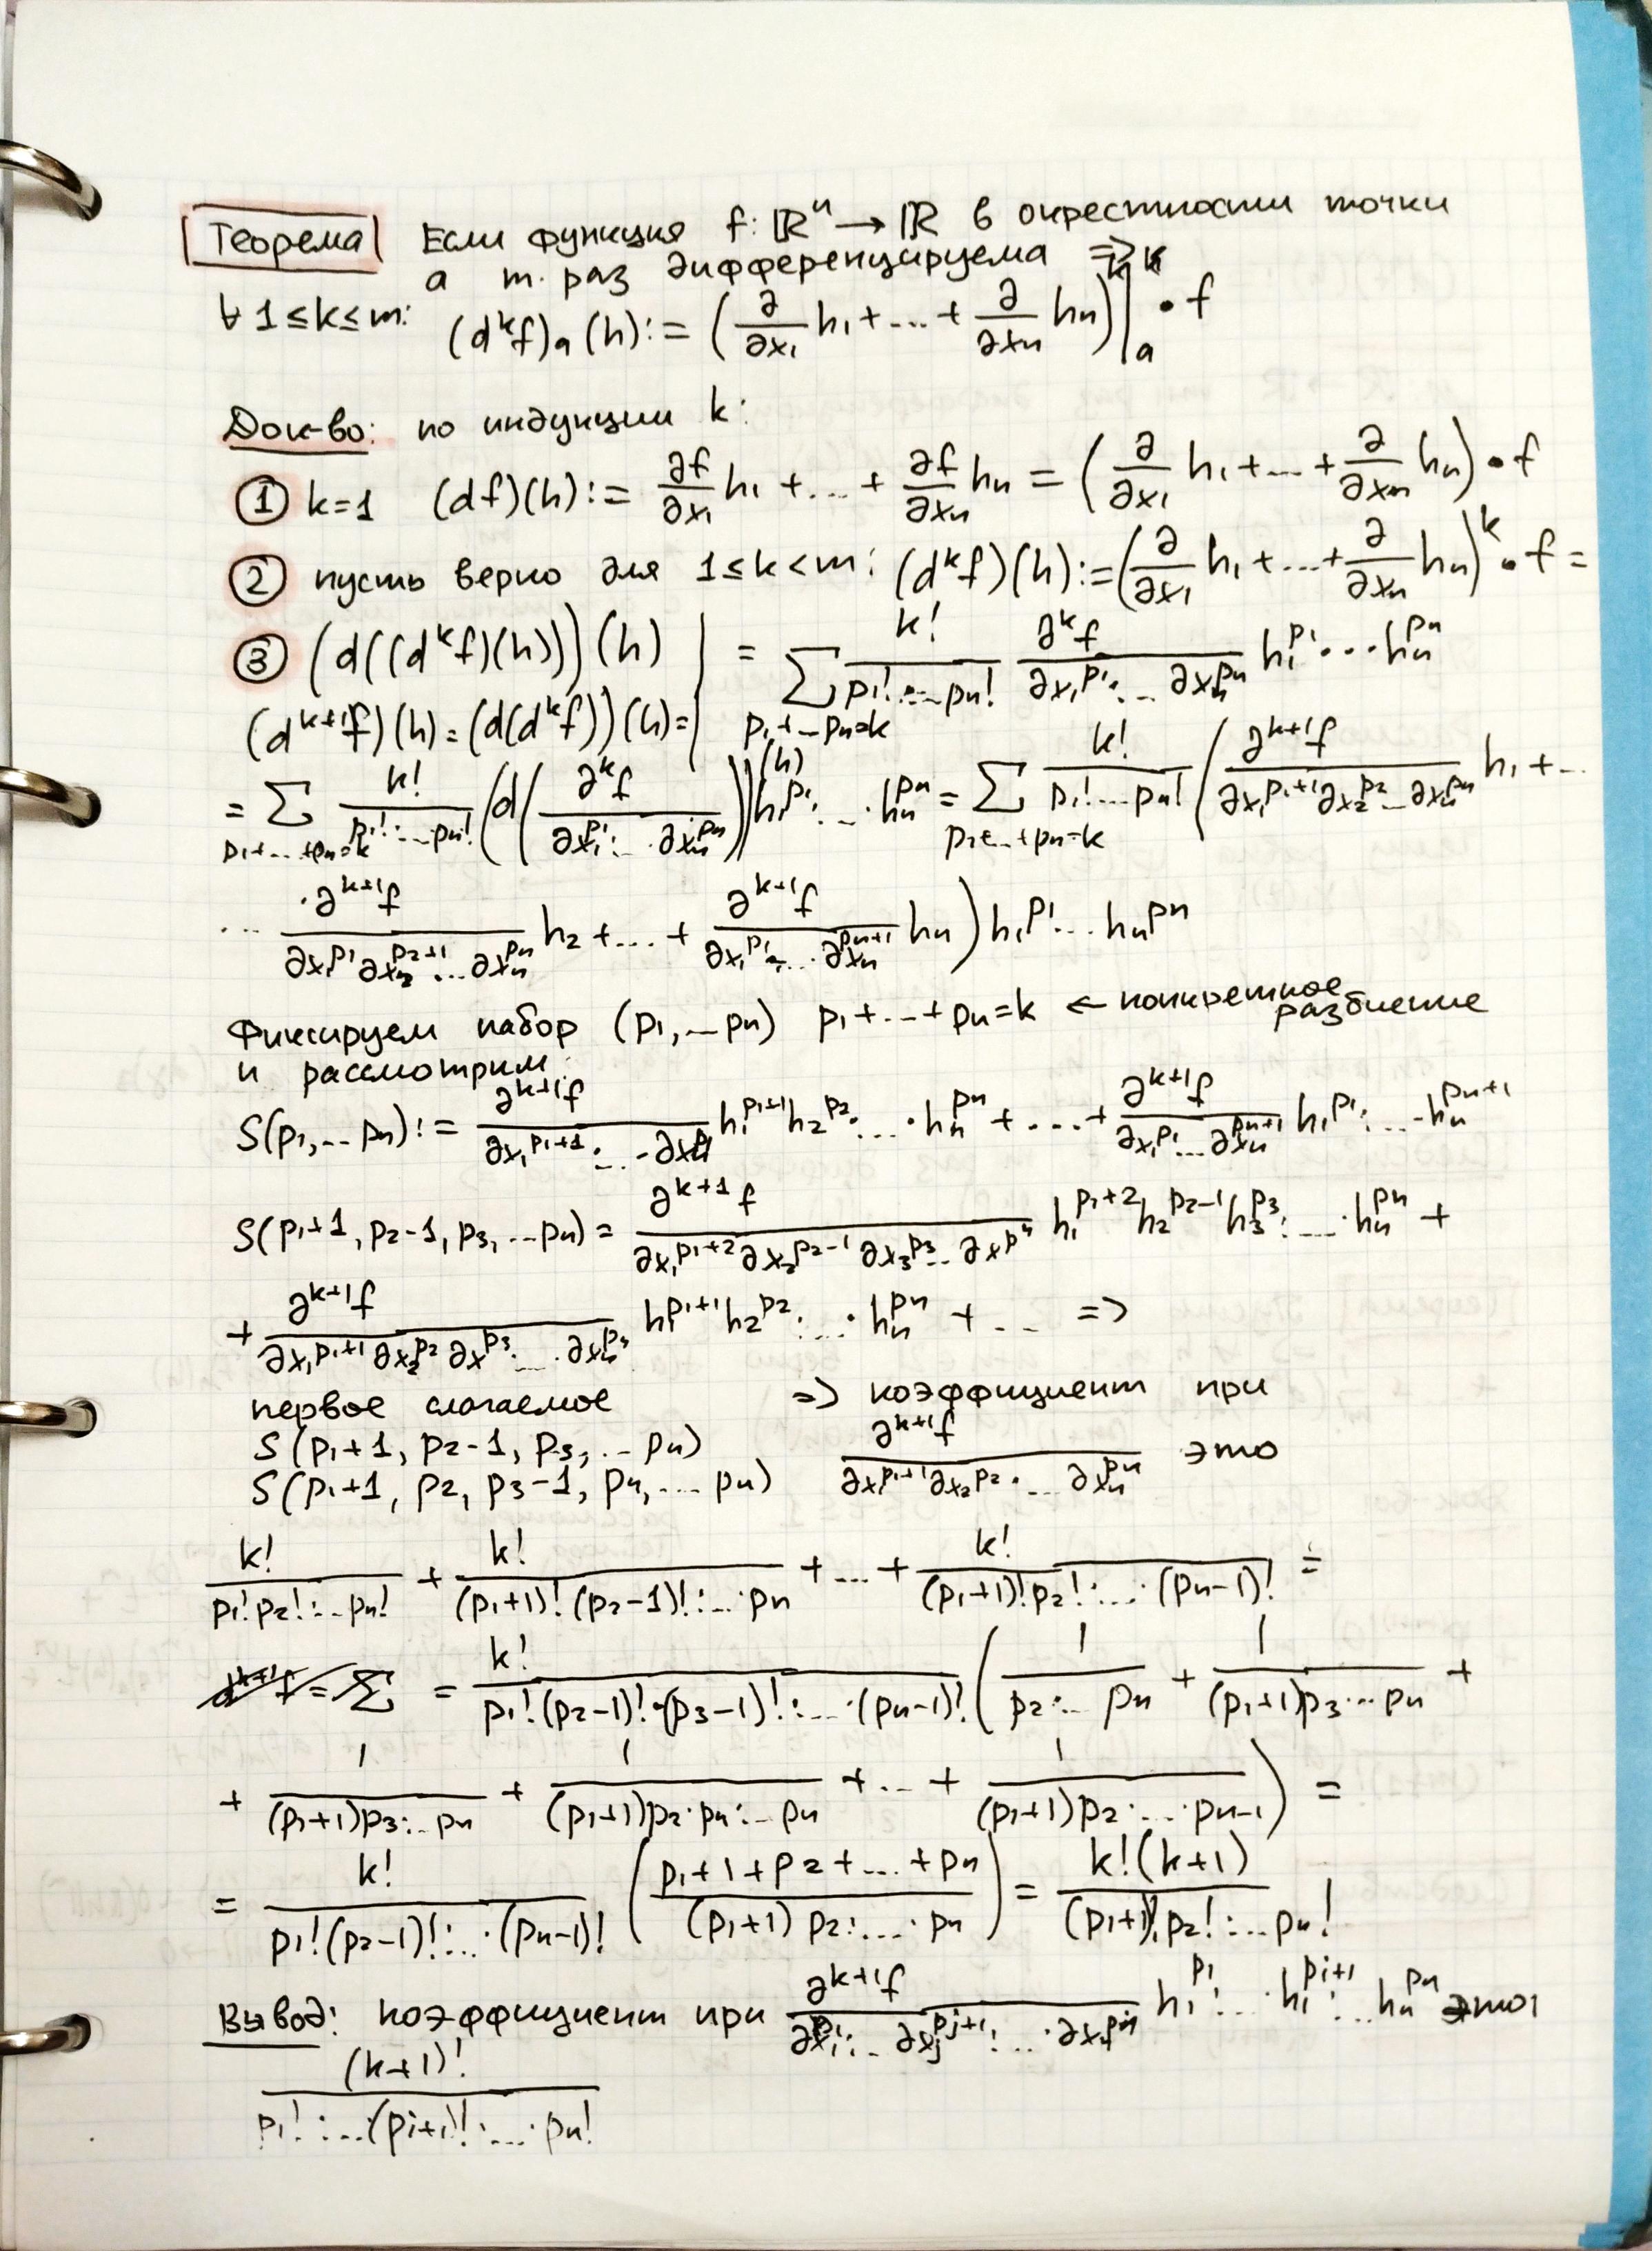 Теорема Если функция f: ℝⁿ → ℝ в окрестности точки
a m раз дифференцируема ⇒
∀ 1 ≤ k ≤ m: (dᵏf)ₐ(h) := (∂/∂x₁ h₁ + ... + ∂/∂xₙ hₙ)ᵏ|ₐ • f
Док-во: по индукции k:
① k=1 (df)(h) := ∂f/∂x₁ h₁ + ... + ∂f/∂xₙ hₙ = (∂/∂x₁ h₁ + ... + ∂/∂xₙ hₙ) • f
② пусть верно для 1 ≤ k < m: (dᵏf)(h) := (∂/∂x₁ h₁ + ... + ∂/∂xₙ hₙ)ᵏ • f =
③ (d((dᵏf)(h)))(h) | = ∑_{p₁+...pₙ=k} k!/(p₁!·...pₙ!) ∂ᵏf/(∂x₁^{p₁}·...∂xₙ^{pₙ}) h₁^{p₁}·...hₙ^{pₙ}
(dᵏ⁺¹f)(h) = (d(dᵏf))(h) = |
= ∑_{p₁+...+pₙ=k} k!/(p₁!·...pₙ!) (d(∂ᵏf/(∂x₁^{p₁}·...·∂xₙ^{pₙ})))(h) h₁^{p₁}·...·hₙ^{pₙ} = ∑_{p₁+...+pₙ=k} k!/(p₁!·...pₙ!) (∂ᵏ⁺¹f/(∂x₁^{p₁+1}∂x₂^{p₂}...∂xₙ^{pₙ}) h₁ + ...
... ∂ᵏ⁺¹f/(∂x₁^{p₁}∂x₂^{p₂+1}...∂xₙ^{pₙ}) h₂ + ... + ∂ᵏ⁺¹f/(∂x₁^{p₁}·...·∂xₙ^{pₙ+1}) hₙ) h₁^{p₁}·...hₙ^{pₙ}
Фиксируем набор (p₁,...pₙ) p₁+...+pₙ=k ← конкретное разбиение
и рассмотрим:
S(p₁,...pₙ) := ∂ᵏ⁺¹f/(∂x₁^{p₁+1}·...·∂xₙ^{pₙ}) h₁^{p₁+1}h₂^{p₂}·...·hₙ^{pₙ} + ... + ∂ᵏ⁺¹f/(∂x₁^{p₁}...∂xₙ^{pₙ+1}) h₁^{p₁}·...·hₙ^{pₙ+1}
S(p₁+1, p₂-1, p₃,...pₙ) = ∂ᵏ⁺¹f/(∂x₁^{p₁+2}∂x₂^{p₂-1}∂x₃^{p₃}...∂x^{pₙ}) h₁^{p₁+2}h₂^{p₂-1}h₃^{p₃}·...·hₙ^{pₙ} +
+ ∂ᵏ⁺¹f/(∂x₁^{p₁+1}∂x₂^{p₂}∂x^{p₃}·...·∂xₙ^{pₙ}) h₁^{p₁+1}h₂^{p₂}·...·hₙ^{pₙ} + ... =>
первое слагаемое => коэффициент при
S(p₁+1, p₂-1, p₃,...pₙ) ∂ᵏ⁺¹f/(∂x₁^{p₁+1}∂x₂^{p₂}·...∂xₙ^{pₙ}) это
S(p₁+1, p₂, p₃-1, p₄,...pₙ)
k!/(p₁!p₂!·...pₙ!) + k!/((p₁+1)!(p₂-1)!·...·pₙ) + ... + k!/((p₁+1)!p₂!·...·(pₙ-1)!) =
= k!/(p₁!(p₂-1)!·(p₃-1)!·...·(pₙ-1)!) (1/(p₂·...pₙ) + 1/((p₁+1)p₃...pₙ) +
+ 1/((p₁+1)p₃·...pₙ) + 1/((p₁+1)p₂·p₄·...pₙ) + ... + 1/((p₁+1)p₂·...·pₙ₋₁)) =
= k!/(p₁!(p₂-1)!·...·(pₙ-1)!) ((p₁+1+p₂+...+pₙ)/((p₁+1)p₂·...·pₙ)) = k!(k+1)/((p₁+1)!p₂!·...pₙ!)
Вывод: коэффициент при ∂ᵏ⁺¹f/(∂x₁^{p₁}·...∂xⱼ^{pⱼ+1}·...·∂xₙ^{pₙ}) h₁^{p₁}·...·hᵢ^{pᵢ+1}·...hₙ^{pₙ} это:
(k+1)!/(p₁!·...·(pᵢ+1)!·...·pₙ!)